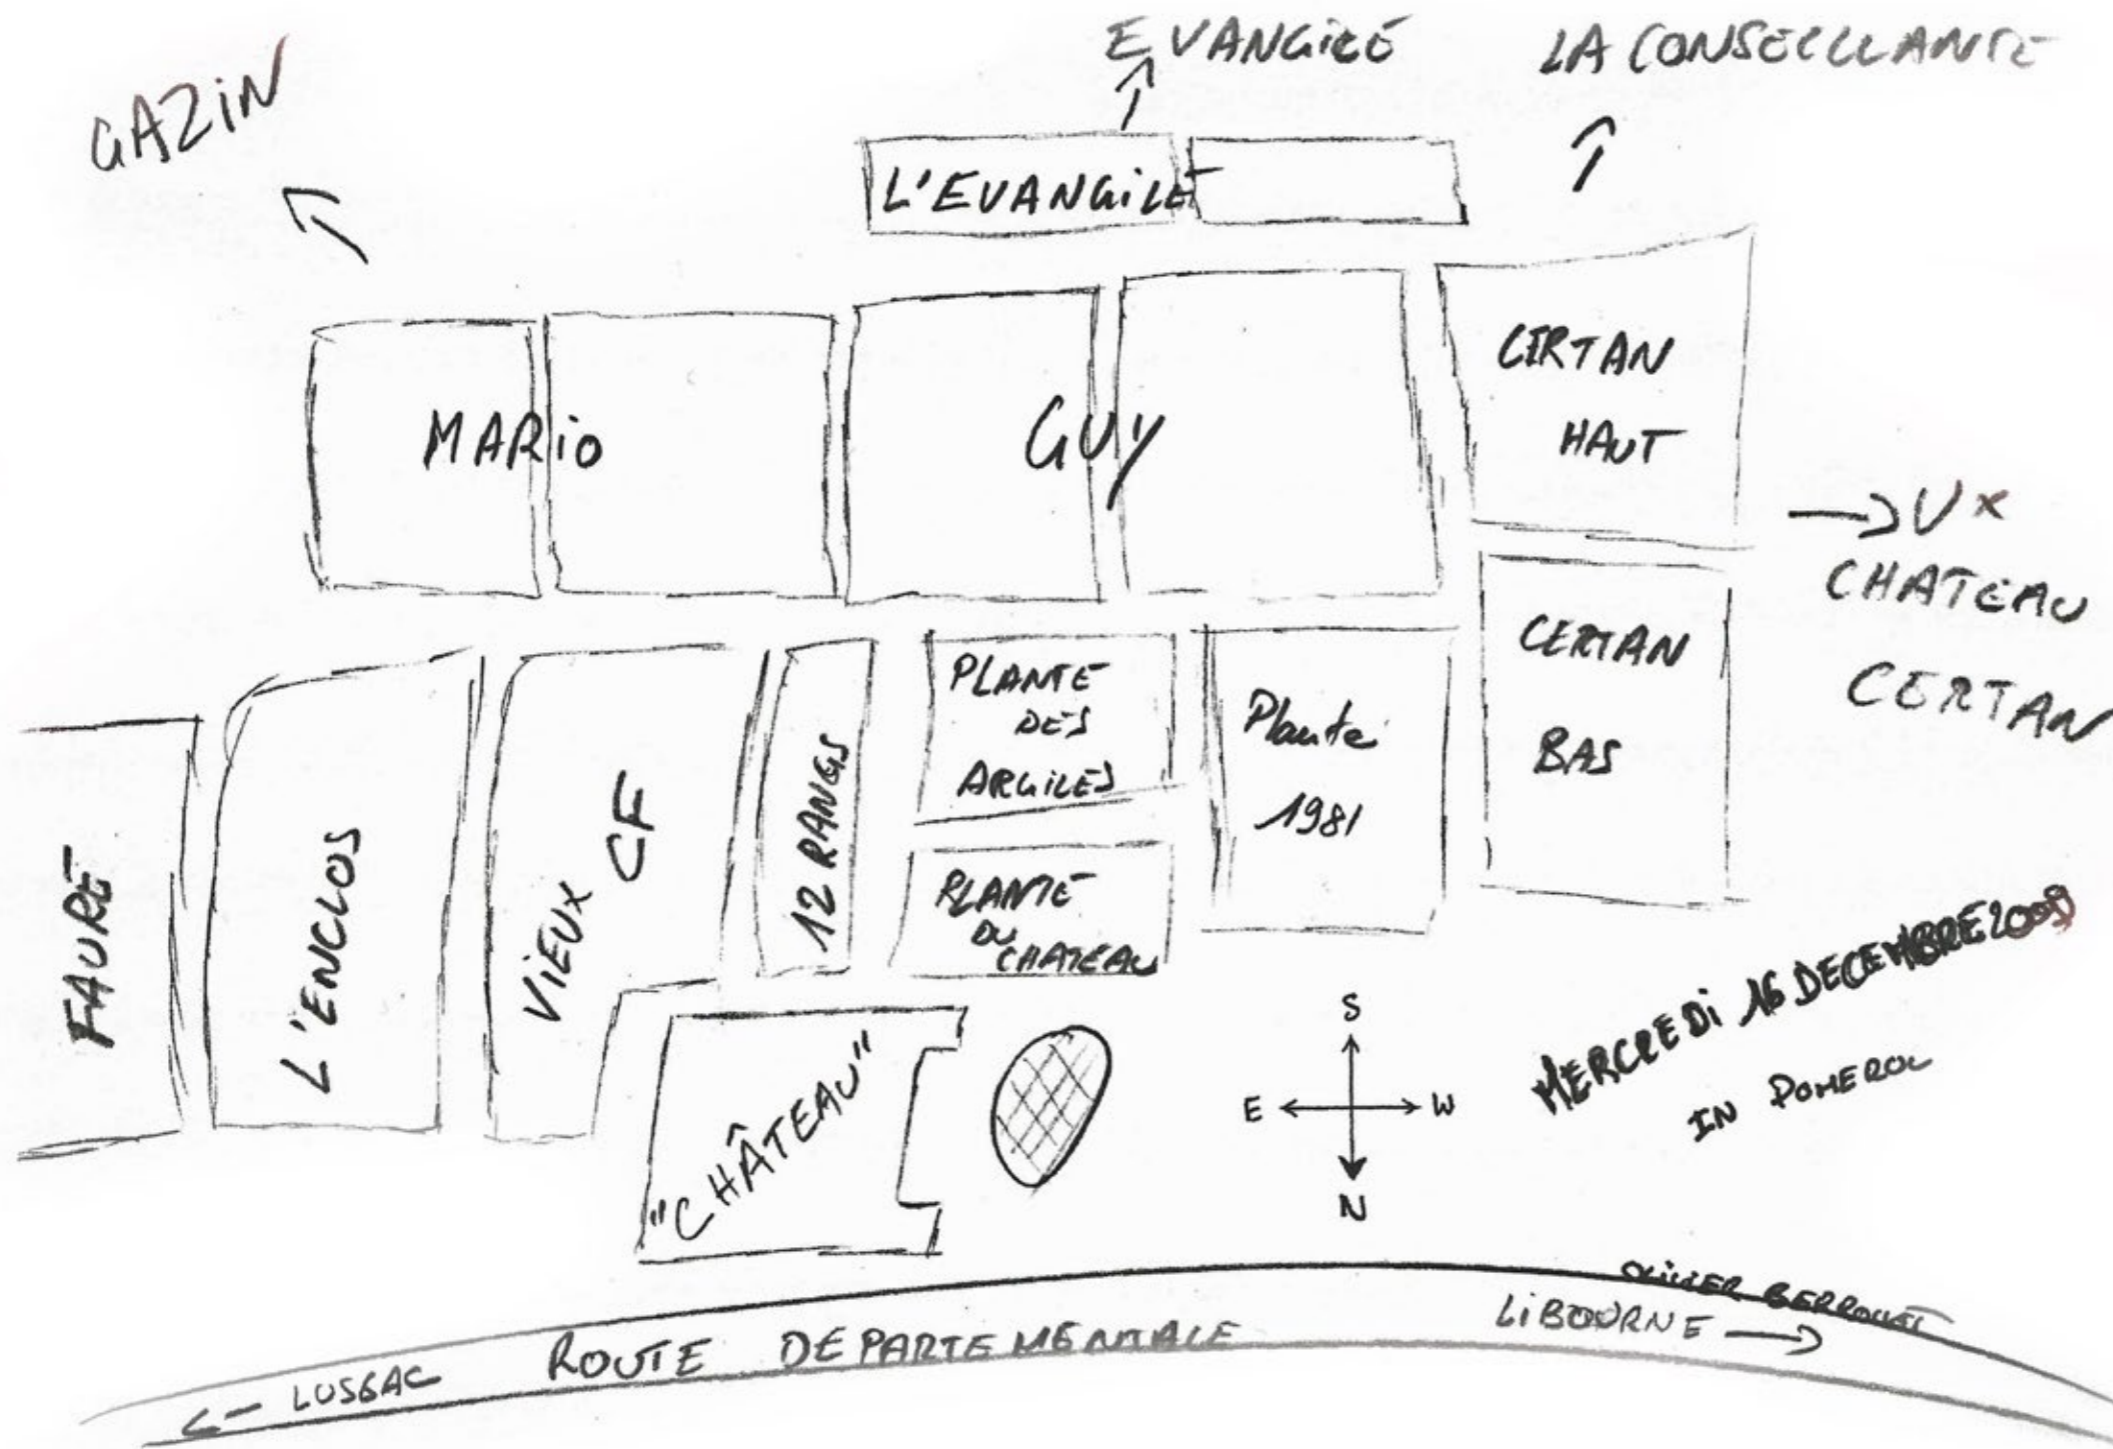 EVANGILE
LA CONSEILLANTE
GAZIN
L'EVANGILE
MARIO
GUY
CERTAN
HAUT
→ VX
CHATEAU
CERTAN
FAURE
L'ENCLOS
VIEUX CF
12 RANGS
PLANTE
DES
ARGILES
PLANTE
DU
CHATEAU
Plante
1981
CERTAN
BAS
"CHÂTEAU"
S
E W
N
MERCREDI 16 DECEMBRE 2009
IN POMEROL
OLIVIER BERROUET
LIBOURNE →
ROUTE DEPARTEMENTALE
← LUSSAC